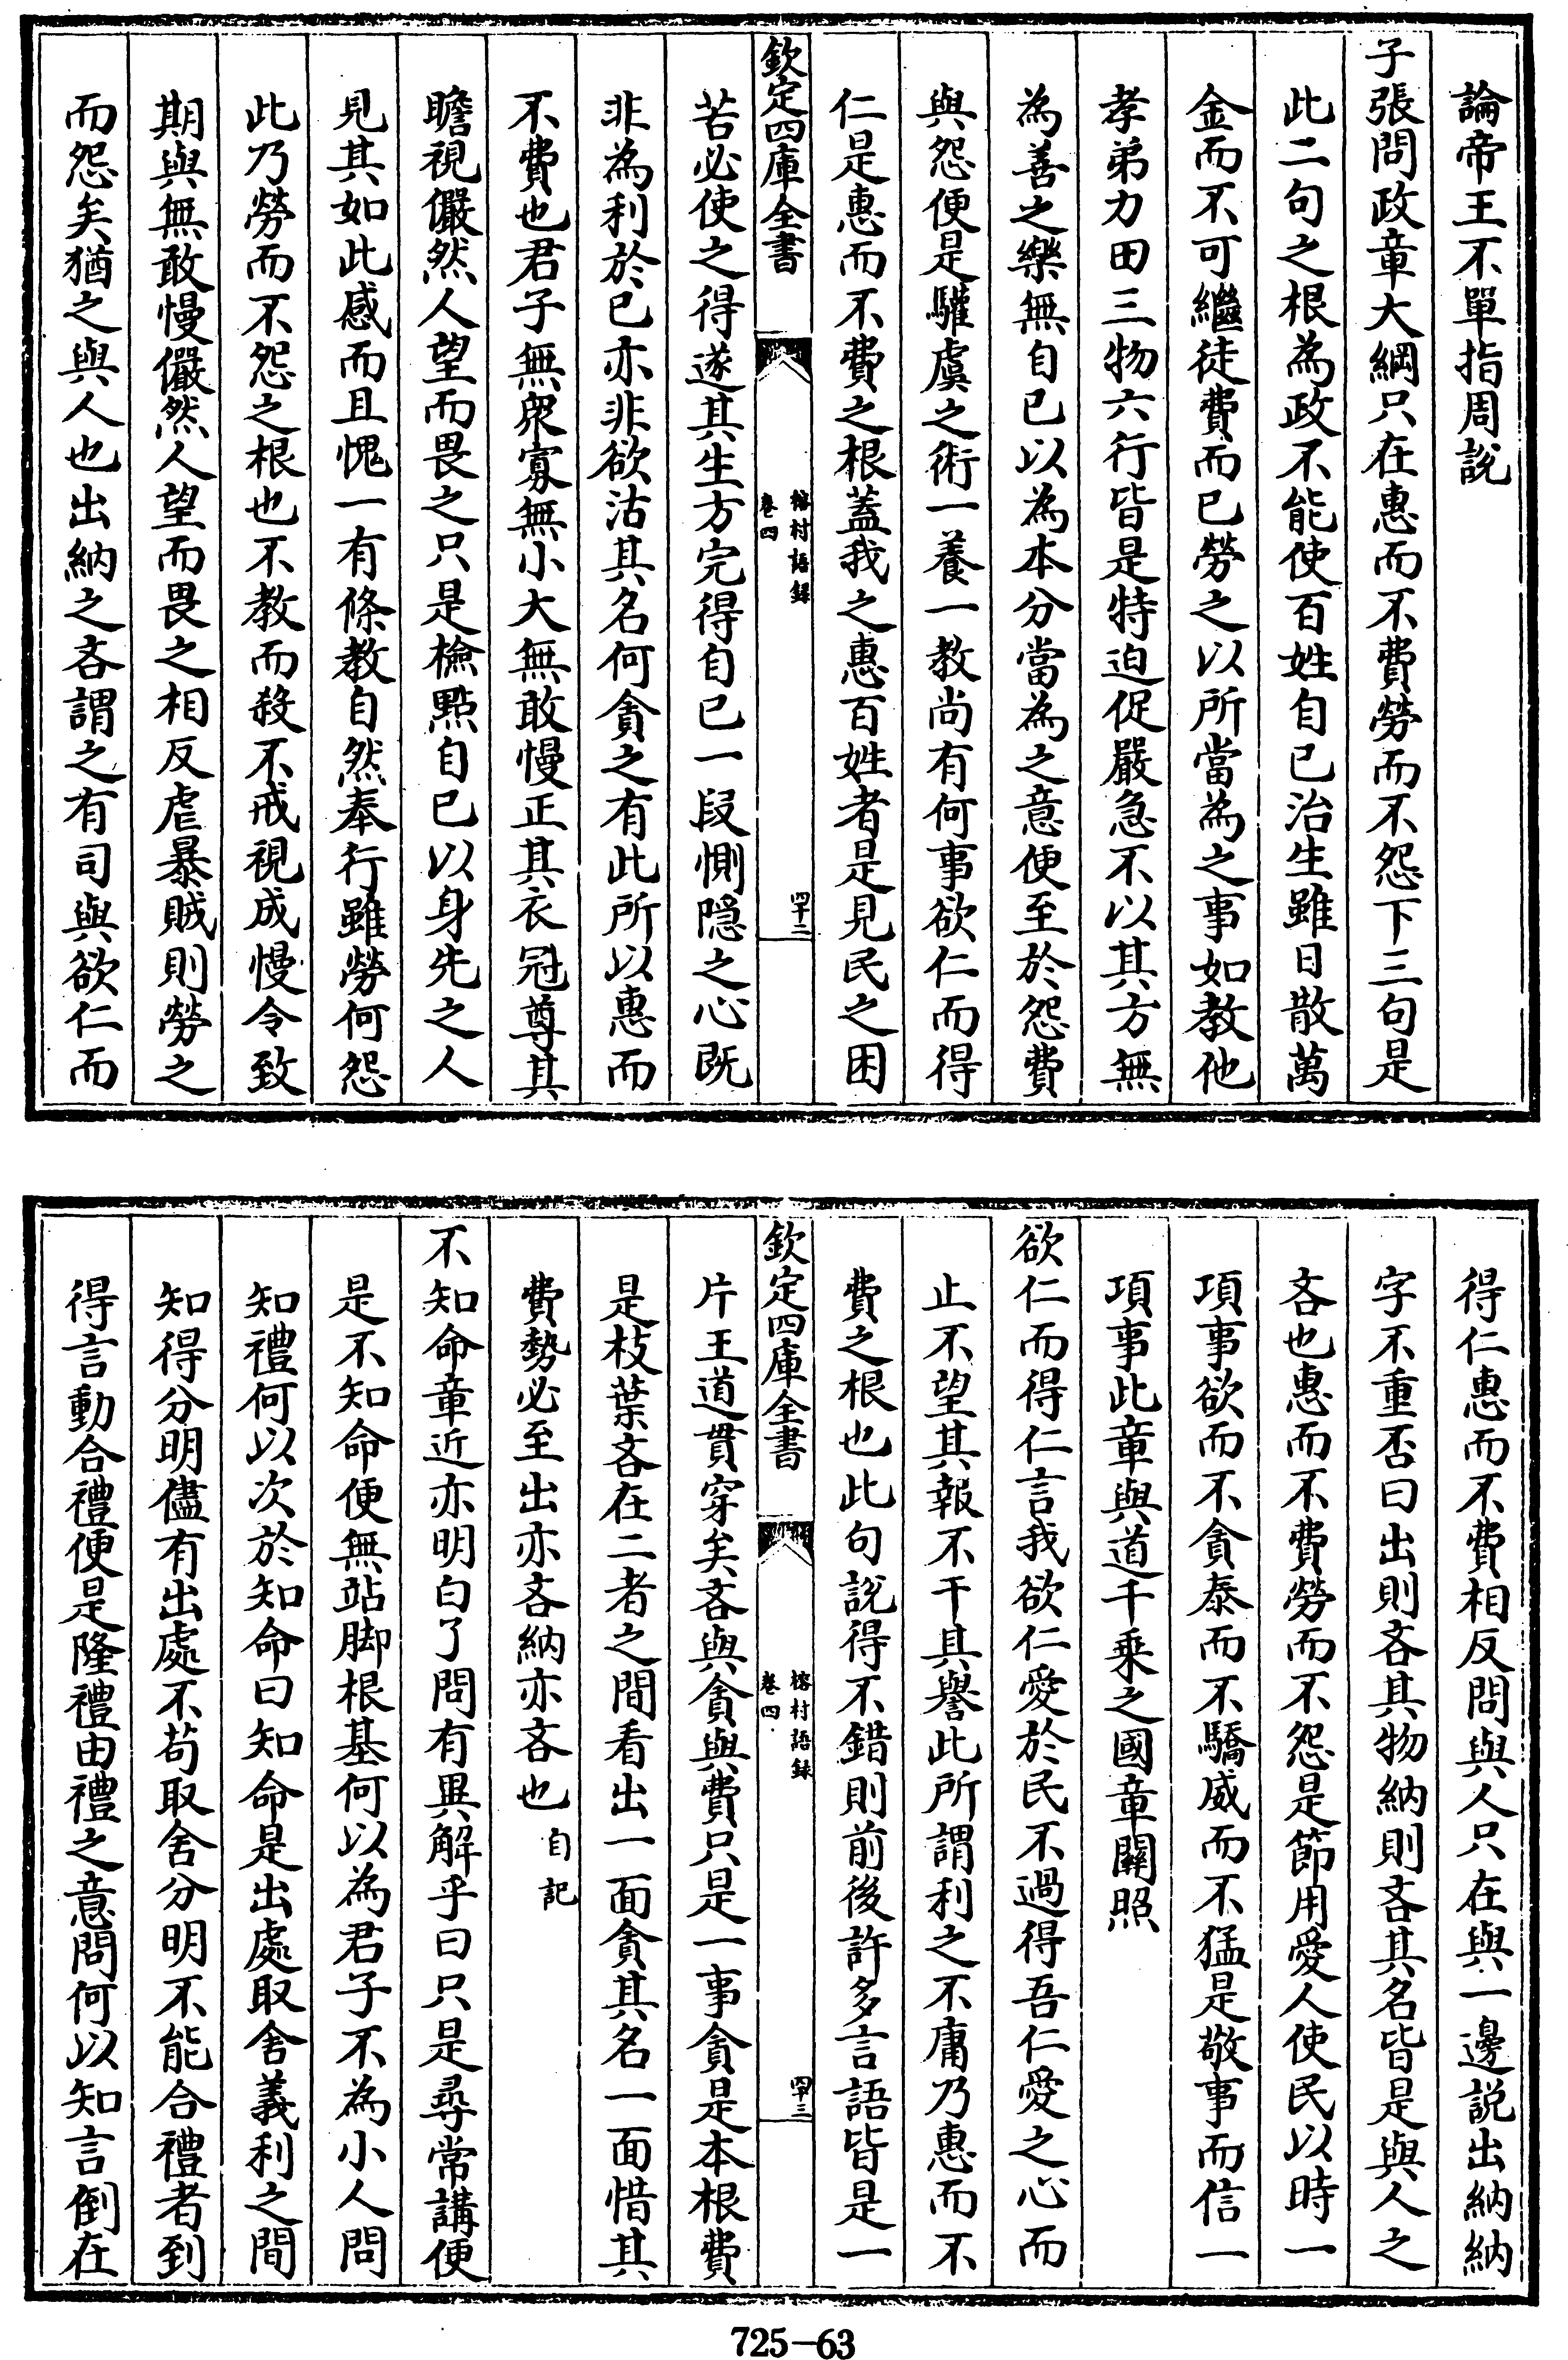 論帝王不單指周說
子張問政章大綱只在惠而不費勞而不怨下三句是
此二句之根為政不能使百姓自已治生雖日散萬
金而不可繼徒費而已勞之以所當為之事如教他
孝弟力田三物六行皆是特迫促嚴急不以其方無
為善之樂無自已以為本分當為之意便至於怨費
與怨便是驩虞之術一養一教尚有何事欲仁而得
仁是惠而不費之根蓋我之惠百姓者是見民之困
欽定四庫全書
榕村語錄
卷四
四十二
苦必使之得遂其生方完得自已一段惻隠之心既
非為利於已亦非欲沽其名何貪之有此所以惠而
不費也君子無衆寡無小大無敢慢正其衣冠尊其
瞻視儼然人望而畏之只是檢點自已以身先之人
見其如此感而且愧一有條教自然奉行雖勞何怨
此乃勞而不怨之根也不教而殺不戒視成慢令致
期與無敢慢儼然人望而畏之相反虐暴賊則勞之
而怨矣猶之與人也出納之吝謂之有司與欲仁而
得仁惠而不費相反問與人只在與一邊説出納納
字不重否曰出則吝其物納則吝其名皆是與人之
吝也惠而不費勞而不怨是節用愛人使民以時一
項事欲而不貪泰而不驕威而不猛是敬事而信一
項事此章與道千乗之國章關照
欲仁而得仁言我欲仁愛於民不過得吾仁愛之心而
止不望其報不干其譽此所謂利之不庸乃惠而不
費之根也此句説得不錯則前後許多言語皆是一
欽定四庫全書
榕村語録
卷四
四十三
片王道貫穿矣吝與貪與費只是一事貪是本根費
是枝葉吝在二者之間看出一面貪其名一面惜其
費勢必至出亦吝納亦吝也自記
不知命章近亦明白了問有異解乎曰只是尋常講便
是不知命便無站脚根基何以為君子不為小人問
知禮何以次於知命曰知命是出處取舍義利之間
知得分明儘有出處不苟取舍分明不能合禮者到
得言動合禮便是隆禮由禮之意問何以知言倒在
725-63